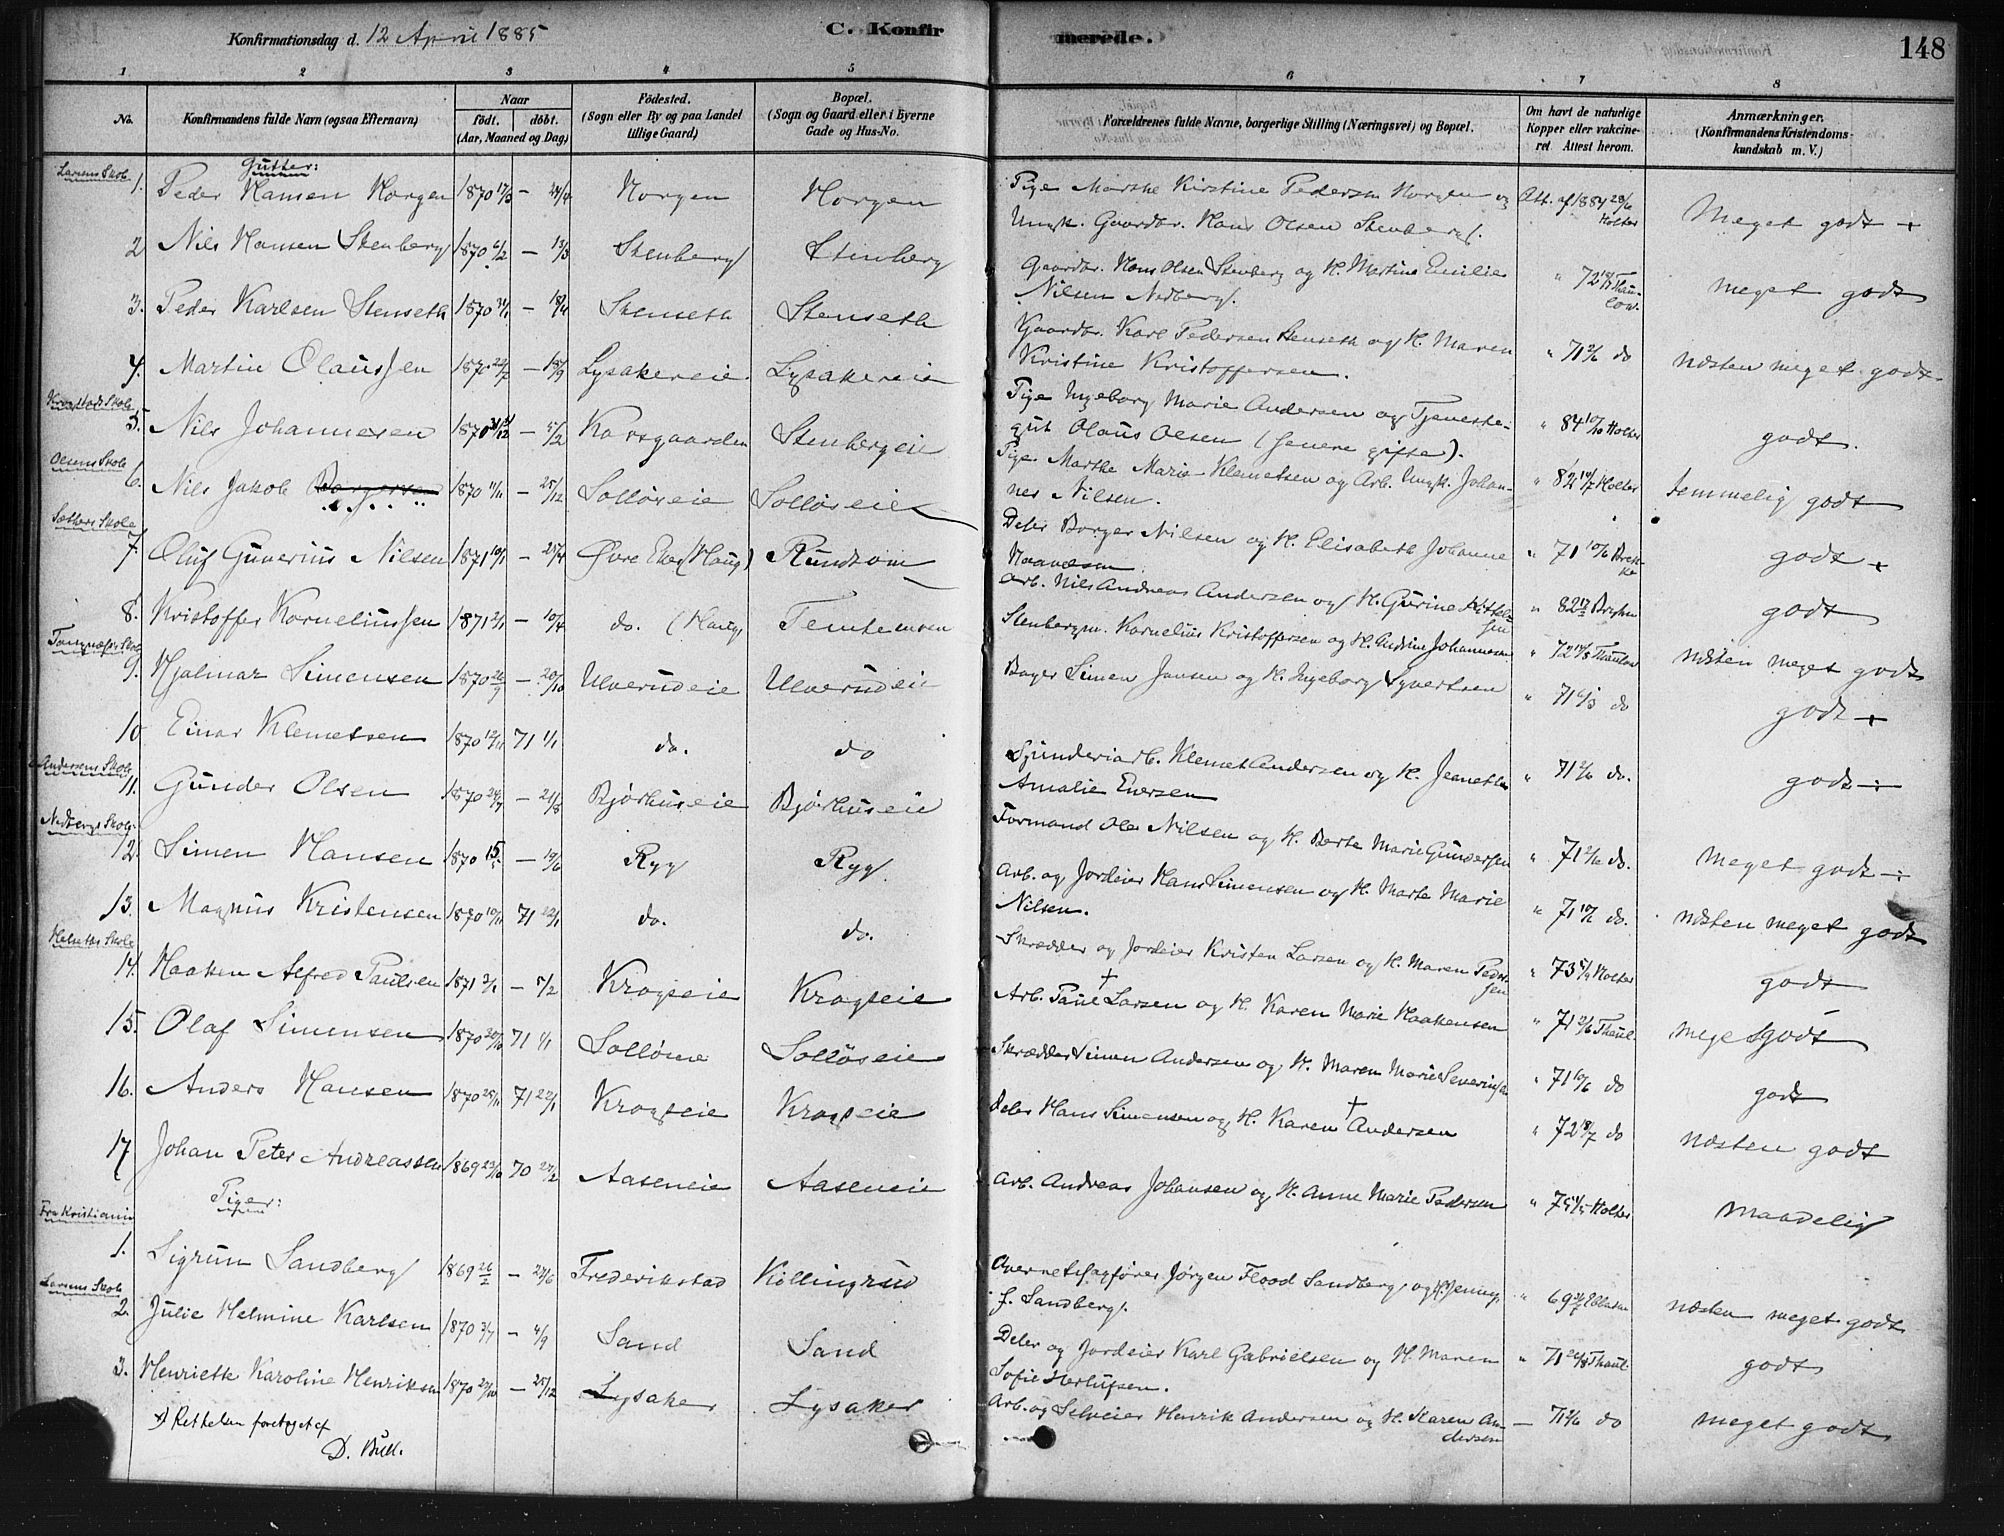 Konfirmationsdag d. 12 April 1885
C. Konfirmerede.
148
1 2 3 4 5 6 7 8
No.
Konfirmandens fulde Navn (ogsaa Efternavn)
Naar
født. døbt.
(Aar, Maaned og Dag)
Fødested.
(Sogn eller By og paa Landet tillige Gaard)
Bopæl.
(Sogn og Gaard eller i Byerne Gade og Hus-No.
Forældrenes fulde Navne, borgerlige Stilling (Næringsvei) og Bopæl.
Om havt de naturlige Kopper eller vakcineret Attest herom.
Anmærkninger.
(Konfirmandens Kristendomskundskab m. V.)
Gutter:
Larsens Skole
1. Peder Hansen Horgen 1870 17/3 — 24/4 Horgen Horgen Pige Marthe Kirstine Pedersen Horgen og Ungk. Gaardbr. Hans Olsen Stenberg. Att. af 1884 28/6 Holter Meget godt +
2 Nils Hansen Stenberg 1870 6/2 — 13/3 Stenberg Stenberg Gaardbr. Hans Olsen Stenberg og H. Martine Emilie Nilsen Nedberg. " 72 Thaulow. meget godt
3. Peder Karlsen Stenseth 1870 — 18/4 Stenseth Stenseth Gaardbr. Karl Pedersen Stenseth og H. Maren Kristine Kristoffersen. " 71 2/6 do næsten meget godt
4. Martin Olaussen 1870 — 18/9 Lysakereie Lysakereie Pige Ingeborg Marie Andersen og Tjenestegut Olaus Olsen (senere gifte). " 84 10/10 Holter godt.
Krogstads Skole
5. Nils Johannesen 1870 — 5/2 Korsgaarden Stenbergeie Pige Marthe Marie Klemetsen og Arb. Ungk. Johannes Nilsen. " 82 Holter temmelig godt
Olsens Skole
6. Nils Jakob Borgersen 1870 11/11 — 25/12 Solløseie Solløseie Deler Borger Nilsen og H. Elisabeth Johanne Haavesen " 71 10/6 Brekke godt +
Sæthers Skole
7. Oluf Gunerius Nilsen 1871 10/1 — 25/4 Øvre Eker (Haug) Rundtom Arb. Nils Andreas Andersen og H. Gurine Kittelsen " 82 Bryhn godt
8. Kristoffer Korneliussen 1871 2/1 — 10/4 do. (Haug) Temtemoen Stenbergm. Kornelius Kristoffersen og H. Andrine Johannesen " 72 Thaulow næsten meget godt
9. Hjalmar Simensen 1870 26/9 — 20/10 Ulverudeie Ulverudeie Bager Simen Jansen og H. Ingeborg Syvertsen " 71 6/3 do godt +
10 Einar Klemetsen 1870 12/11 71 1/1 do. do Sjünderiarb. Klemet Andersen og H. Jeanette Amalie Eversen " 71 2/6 do. godt ÷
Andersens Skole
11. Gunder Olsen 1870 24/7 — 21/8 Bjørhuseie Bjørhuseie Formand Ole Nilsen og H. Berte Marie Gundersen " 71 2/6 do. Meget godt ÷
Nedbergs Skole
12. Simen Hansen 1870 15/5 — 19/6 Ryg Ryg Arb. og Jordeier Hans Simensen og H. Marte Marie Nilsen. " 71 do. næsten meget godt
13. Magnus Kristensen 1870 10/11 71 22/1 do. do. Skrædder og Jordeier Kristen Larsen og H. Maren Pedersen " 73 Holter godt
Helseths Skole
14. Haaken Alfred Paulsen 1871 2/1 — 5/2 Krogseie Krogseie Arb. Paul † Larsen og H. Karen Marie Haakensen " 71 2/6 Thaul. meget godt
15. Olaf Simensen 1870 20/10 71 1/1 Solløseie Solløseie Skrædder Simen Andersen og H. Maren Marie Severinsen " 71 10/6 do godt
16. Anders Hansen 1870 25/11 71 22/1 Krogseie Krogseie Deler Hans Simensen og H. Karen † Andersen " 72 18/7 do næsten godt
17 Johan Peter Andreassen 1869 70 27/2 Aaseneie Aaseneie Arb. Andreas Johansen og H. Anne Marie Pedersen " 75 Holter maadelig
Piger:
Fra Kristiania
1. Sigrun Sandberg 1869 26/2 — Frederikstad Killingrud Overretssagfører Jørgen Flood Sandberg og H. Jenny f. Sandberg. " 69 næsten meget godt
Larsens Skole
2. Julie Helmine Karlsen 1870 3/7 — 4/9 Sand Sand Deler og Jordeier Karl Gabrielsen og H. Maren Sofie Herlufsen. " 71 Thaul. godt
3. Henriette Karoline Henriksen 1870 27/10 — 25/12 Lysaker Lysaker Arb. og Selveier Henrik Andersen og H. Karen Andersen — 71 2/6 do meget godt
x) Rettelsen foretaget af
D. Bull.